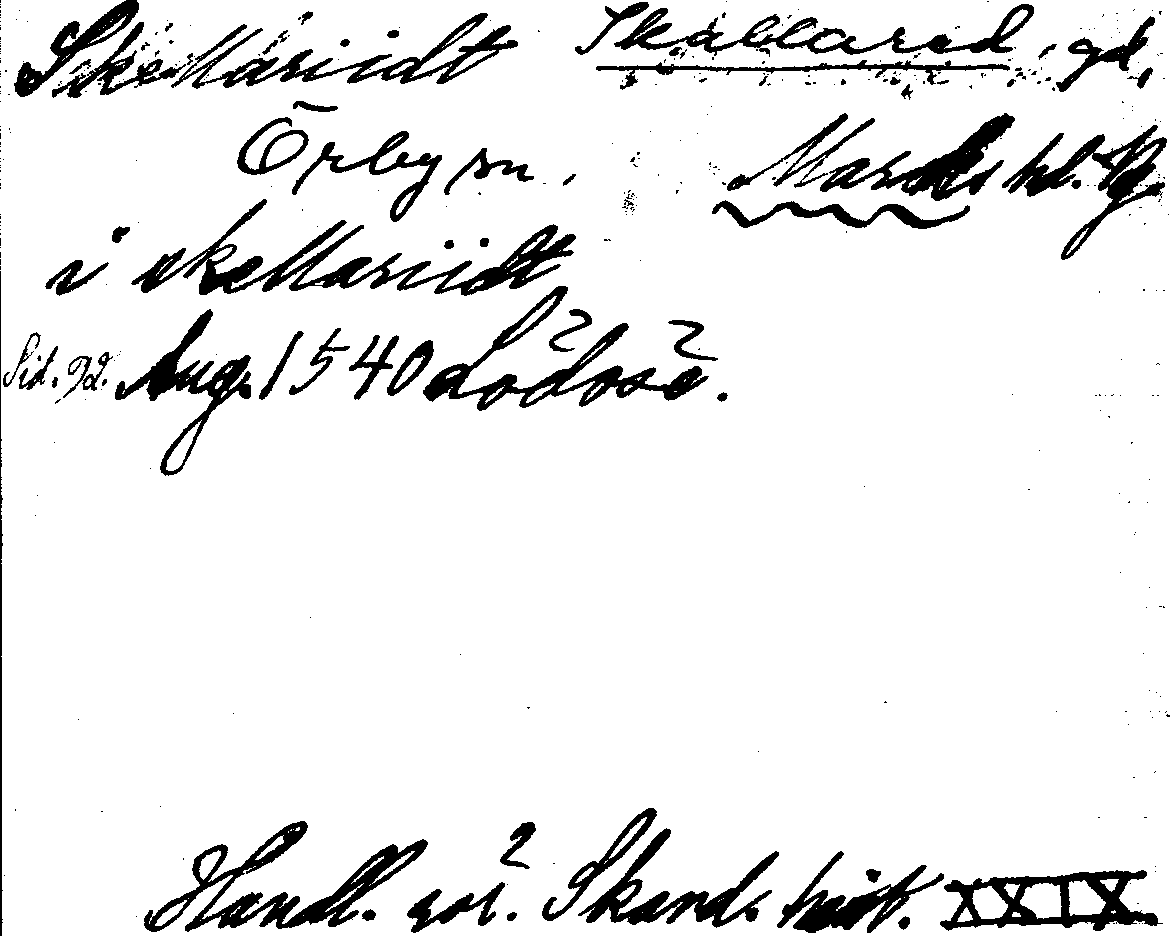 Skellariidt Skällared, gd,
Örby sn, Marks hd. Vg.
i skellariidt
Sid. 92. Aug. 1540 Lödöse.
Handl. rör. Skand. hist. XXIX.